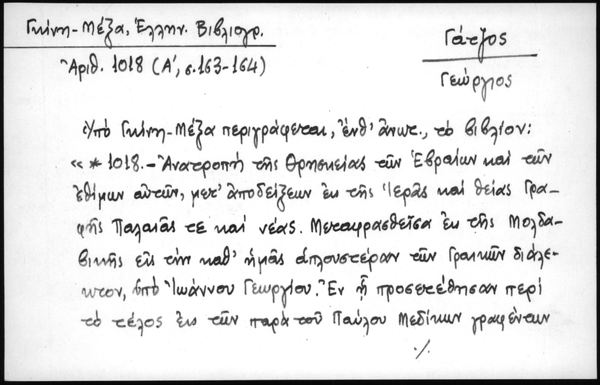 Γκίνη-Μέξα, Ἑλλην. Βιβλιογρ.
Ἀριθ. 1018 (Α', σ. 163-164)
Γάτζος
Γεώργιος
Ὑπὸ Γκίνη-Μέξα περιγράφεται, ἔνθ' ἀνωτ., τὸ βιβλίον:
«*1018.- Ἀνατροπὴ τῆς Θρησκείας τῶν Ἑβραίων καὶ τῶν
ἐθίμων αὐτῶν, μετ' ἀποδείξεων ἐκ τῆς Ἱερᾶς καὶ θείας Γρα-
φῆς Παλαιᾶς τε καὶ νέας. Μεταφρασθεῖσα ἐκ τῆς Μολδα-
βικῆς εἰς τὴν καθ' ἡμᾶς ἁπλουστέραν τῶν Γραικῶν διάλε-
κτον, ὑπὸ Ἰωάννου Γεωργίου. Ἐν ᾗ προσετέθησαν περὶ
τὸ τέλος ἐκ τῶν παρὰ τοῦ Παύλου Μεδίκων γραφέντων
./.